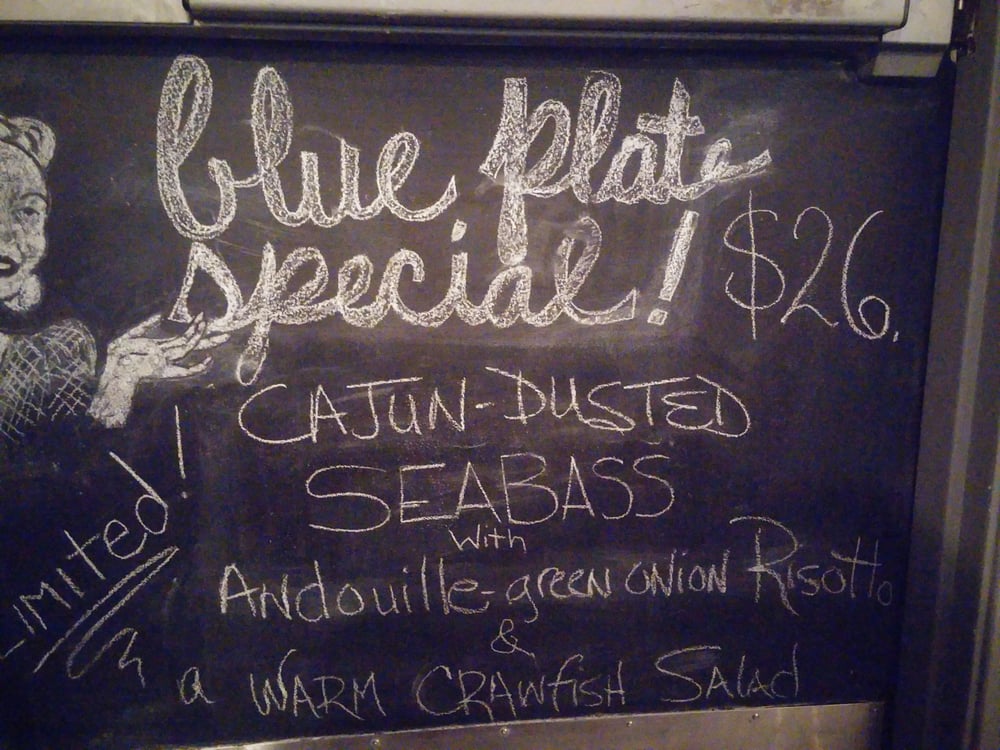 blue plate
special!
$26.
CAJUN-DUSTED
SEABASS
with
Andouille-green onion Risotto
&
a WARM CRAWfish Salad
LIMITed!